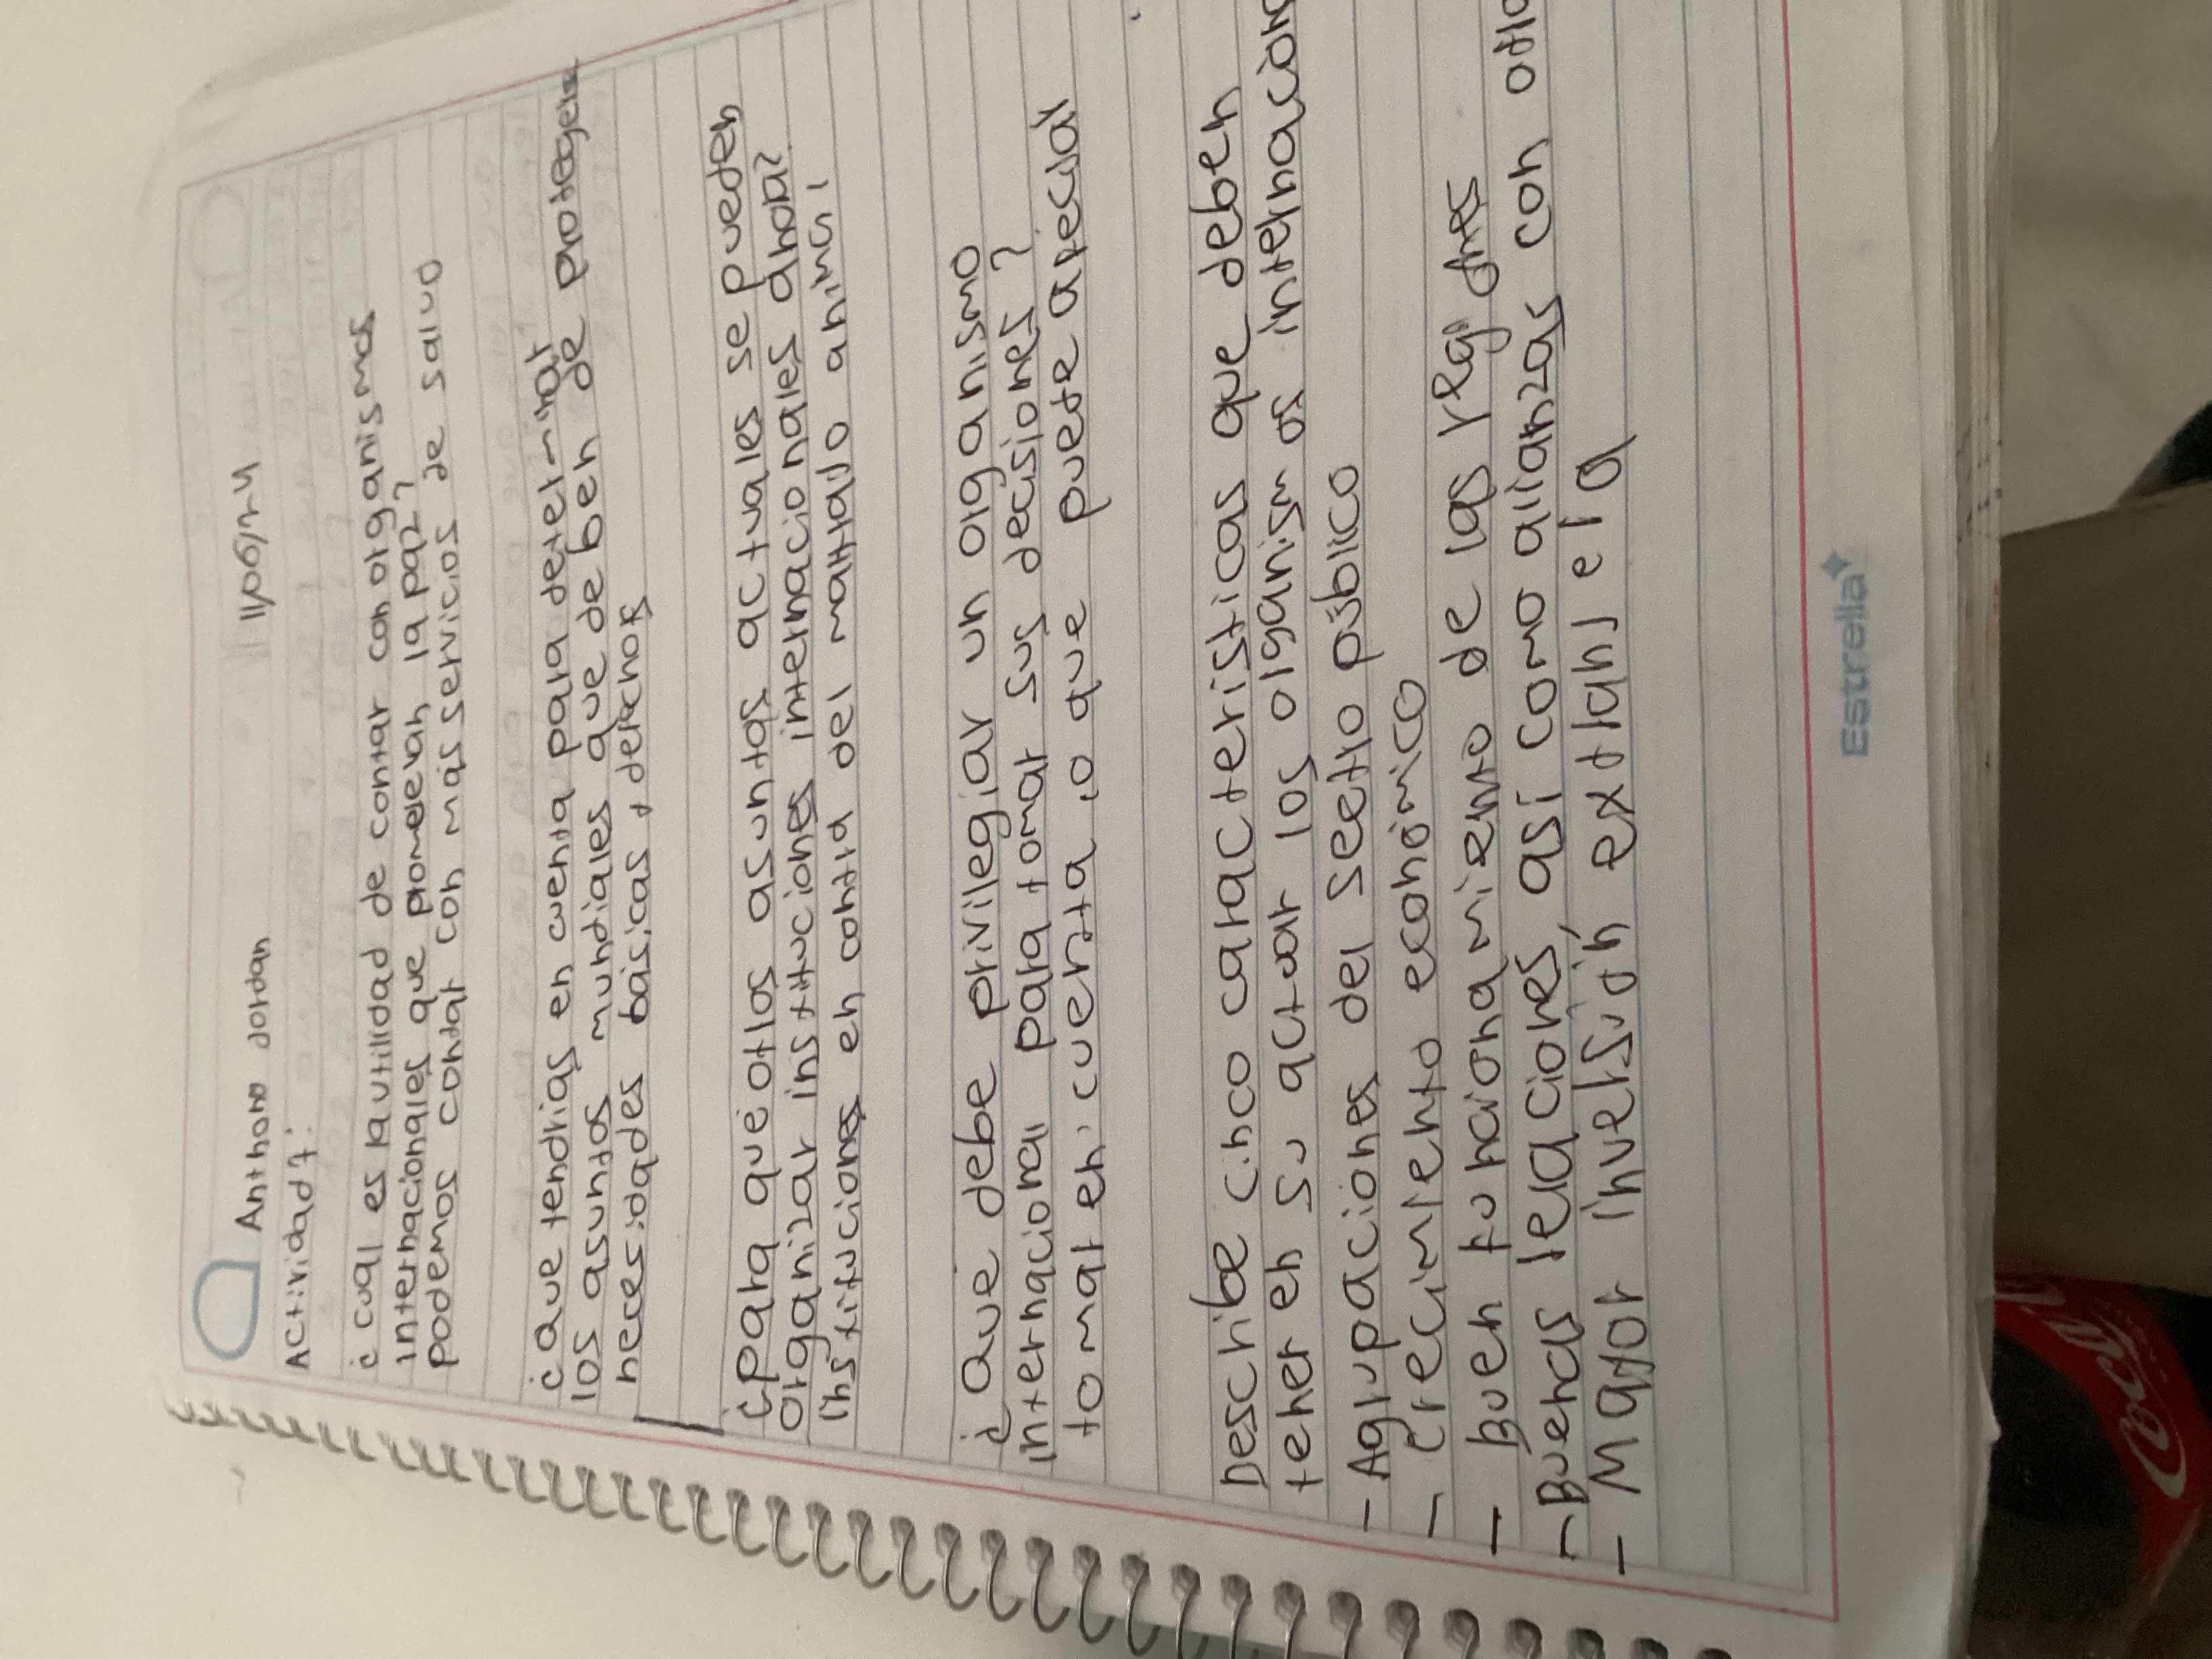 Anthony Jordan 11/06/24
Actividad 7:
¿cual es la utilidad de contar con organismos
internacionales que promuevan la paz?
podemos contar con más servicios de salud
¿que tendrias en cuenta para determinar
los asuntos mundiales que deben de protegerse
necesidades básicas y derechos
¿para qué otros asuntos actuales se pueden
organizar instituciones internacionales ahora?
Instituciones en contra del maltrado animal
¿que debe privilegiar un organismo
internacional para tomar sus decisiones?
tomar en cuenta lo que puede afectar
Describe cinco caracteristicas que deben
tener en su actuar los organismos internacion
- Agrupaciones del sector público
- crecimiento económico
- Buen funcionamiento de las
- Buenas relaciones, así como alianzas con otro
- Mayor inversión extranjera
Estrella
Coca